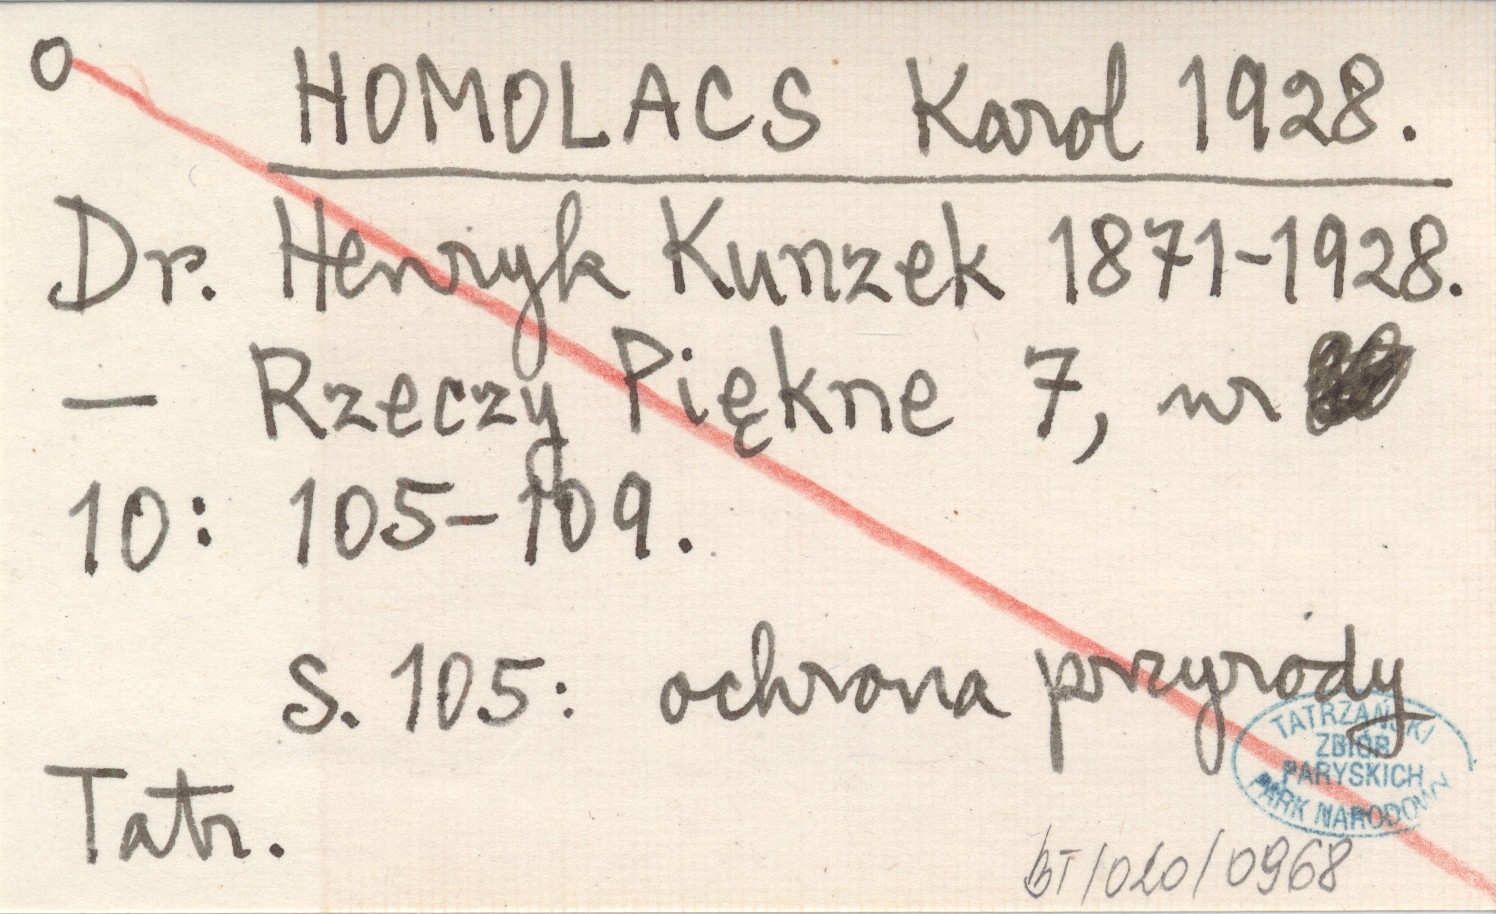 O HOMOLACS Karol 1928.
Dr. Henryk Kunzek 1871-1928.
— Rzeczy Piękne 7, nr
10: 105-109.
s. 105: ochrona przyrody
Tatr.
TATRZAŃSKI
ZBIÓR
PARYSKICH
PARK NARODOWY
BT/020/0968